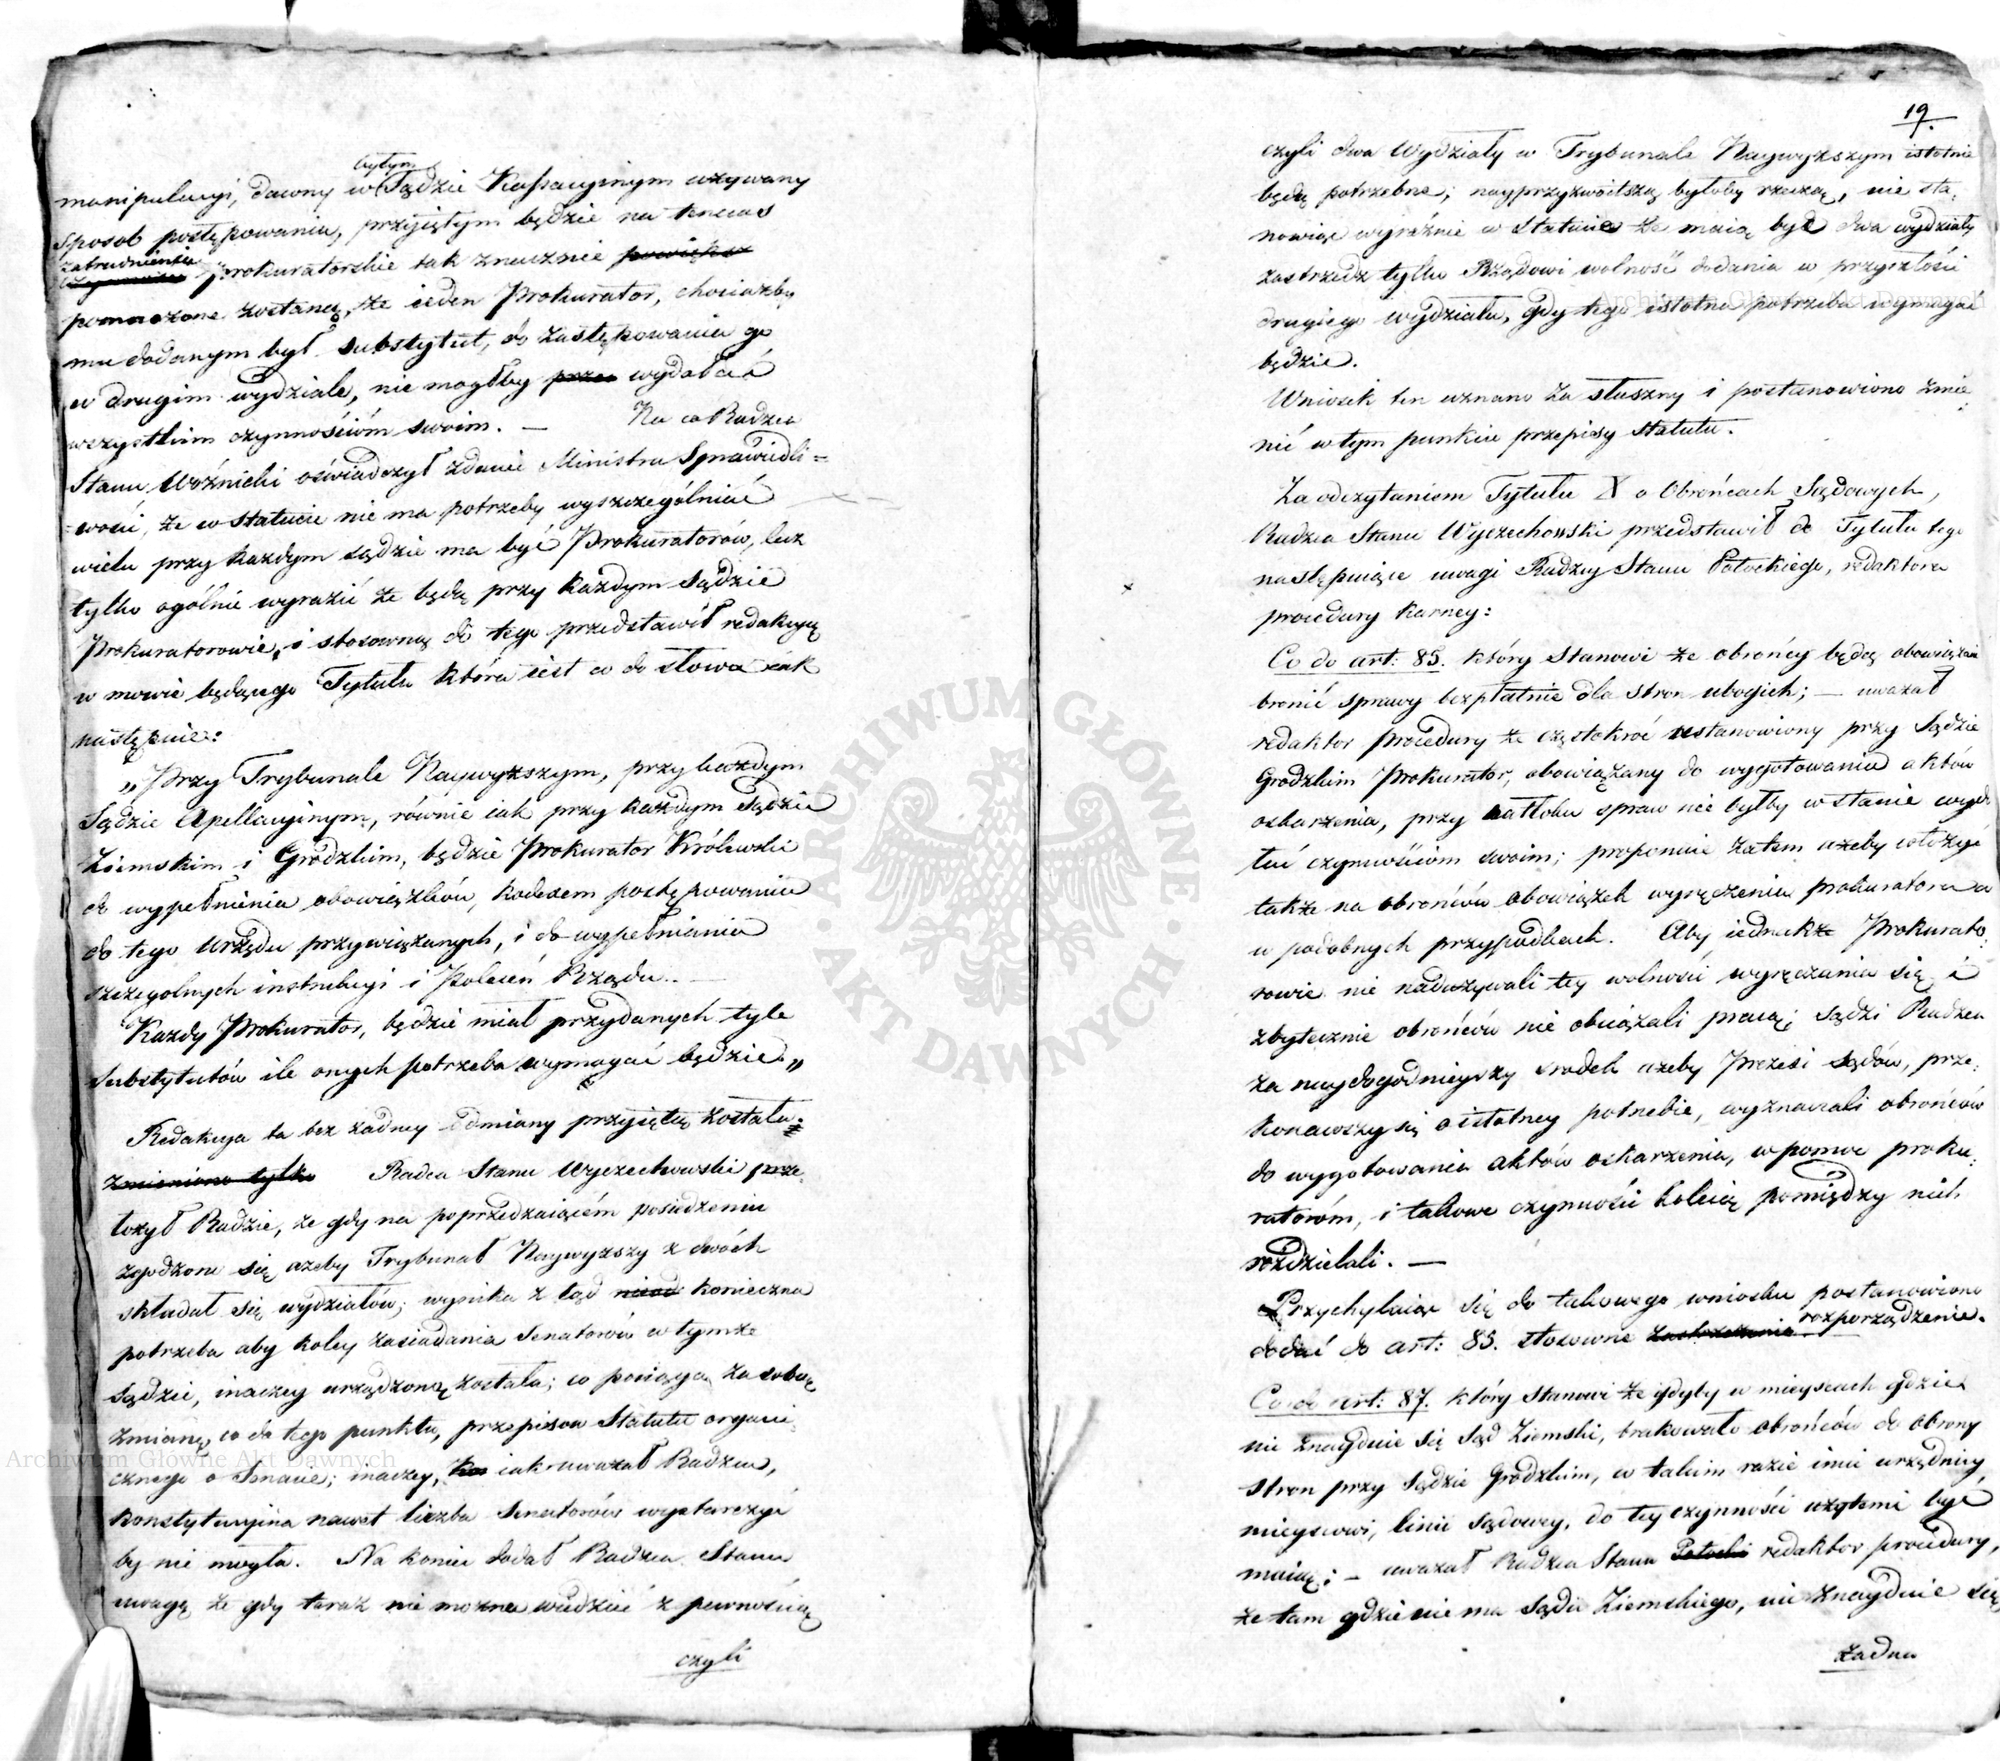 byłym
manipulacyi, dawny w Sądzie Kassacyinym używany
sposob postępowania, przyiętym będzie na tenczas
zatrudnienia
czynności prokuratorskie tak znacznie powiększ
pomnożone zostaną, że ieden Prokurator, chociażby
mu dodanym był substytut, do zastępowania go
w drugim wydziale, nie mogłby przez wydołać
wszystkim czynnościom swoim. — Na co Radzca
Stanu Woźnicki oświadczył zdanie Ministra Sprawiedli=
=wości, że w statucie nie ma potrzeby wyszczególniać
wielu przy każdym sądzie ma być Prokuratorów, lecz
tylko ogólnie wyrazić że będą przy każdym Sądzie
Prokuratorowie, i stosowną do tego przedstawił redakcyą
w mowie będącego Tytułu która iest co do słowa iak
następuie:
„Przy Trybunale Naywyższym, przy każdym
Sądzie Apellacyinym, równie iak przy każdym Sądzie
Ziemskim i Grodzkim, będzie Prokurator Królewski
do wypełnienia obowiązków, kodexem postępowania
do tego Urzędu przywiązanych, i do wypełniania
szczególnych instrukcyi i Poleceń Rządu. —
Każdy Prokurator, będzie miał przydanych tyle
Substytutów ile onych potrzeba wymagać będzie.„
Redakcya ta bez żadney odmiany przyiętą została.
Zmieniono tylko Radca Stanu Wyczechowski prze-
łożył Radzie, że gdy na poprzedzaiącém posiedzeniu
zgodzono się ażeby Trybunał Naywyższy z dwóch
składał się wydziałów; wynika z tąd konieczna
potrzeba aby koley zasiadania Senatorów w tymże
Sądzie, inaczey urządzoną została; co pociąga za sobą
zmianę, co do tego punktu, przepisów Statutu organi-
cznego o Senacie; inaczey, iak uważał Radzca,
konstytucyina nawet liczba Senatorów wystarczyć
by nie mogła. Na koniec dodał Radzca Stanu
uwagę że gdy teraz nie można wiedzieć z pewnością
czyli
19.
czyli dwa Wydziały w Trybunale Naywyższym istotnie
będą potrzebne; nayprzyzwoitszą byłoby rzeczą, nie sta-
nowiąc wyraźnie w statucie że maią być dwa wydziały
zastrzedz tylko Rządowi wolność dodania w przyszłości
drugiego wydziału, gdy tego istotna potrzeba wymagać
będzie.
Wniosek ten uznano za słuszny i postanowiono zmie-
nić w tym punkcie przepisy statutu.
Za odczytaniem Tytułu X o Obrońcach Sądowych,
Radzca Stanu Wyczechowski przedstawił do Tytułu tego
następuiące uwagi Radzcy Stanu Potockiego, redaktora
procedury karney:
Co do art: 85. który Stanowi że obrońcy będą obowiązani
bronić sprawy bezpłatnie dla stron ubogich; — uważał
redaktor Procedury że częstokroć ustanowiony przy Sądzie
Grodzkim Prokurator, obowiązany do wygotowania aktów
oskarżenia, przy natłoku spraw nie byłby w stanie wydo
łać czynnościom swoim; proponuie zatem ażeby włożyć
także na obrońców obowiązek wyręczenia prokuratora
w podobnych przypadkach. Aby iednakże Prokurato-
rowie nie nadużywali tey wolności wyręczania się i
zbytecznie obrońców nie obciążali pracą; sądzi Radzca
za naydogodnieyszy srodek ażeby Prezesi sądów, prze-
konawszy się o istotney potrzebie, wyznaczali obrońców
do wygotowania aktów oskarżenia, w pomoc proku-
ratorom, i takowe czynności koleią pomiędzy nich
rozdzielali. —
Przychylaiąc się do takowego wniosku postanowiono
dodać do art: 85. stosowne zastrzeżenie rozporządzenie.
Co do art: 87. który stanowi że gdyby w mieyscach gdzie
nie znayduie się Sąd Ziemski, brakowało obrońców do obrony
stron przy Sądzie Grodzkim, w takim razie inni urzędnicy
mieyscowi, linii sądowey, do tey czynności użytemi być
maią; — uważał Radzca Stanu Potocki redaktor procedury,
że tam gdzie nie ma Sądu Ziemskiego, nie znayduie się
żadna